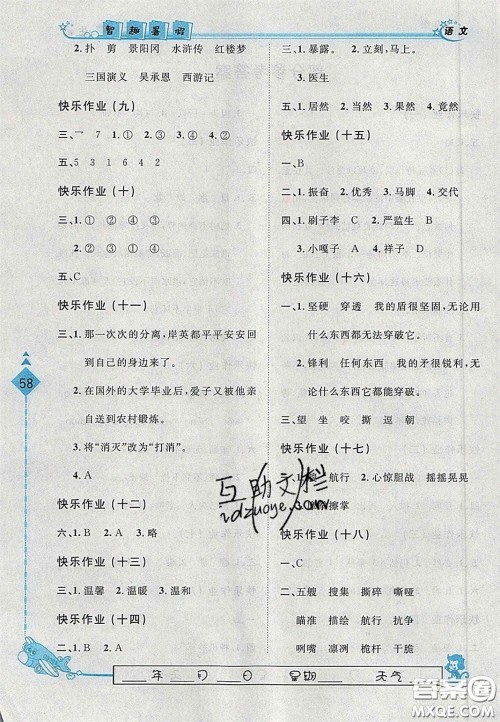 智趣暑假
语文
2. 扑 剪 景阳冈 水浒传 红楼梦
三国演义 吴承恩 西游记
快乐作业（九）
三、一 7 1.① 2.④ 3.③
五、5 3 1 6 4 2
快乐作业（十）
三、1.① ② ④ ③
2.② ① ③ ④
五、C
快乐作业（十一）
三、1.那一次次的分离，岸英都平平安安回
到自己的身边来了。
2.在国外的大学毕业后，爱子又被他亲
自送到农村锻炼。
3.将“消灭”改为“打消”。
4.A
快乐作业（十二）
六、1.B 2.A 3.略
快乐作业（十三）
三、1.温馨 2.温暖 3.温和
快乐作业（十四）
二、1.B 2.A 3.B 4.B
三、1.暴露。 2.立刻，马上。
3.医生
四、1.居然 2.当然 3.果然 4.竟然
快乐作业（十五）
一、B
三、1.振奋 2.优秀 3.马脚 4.交代
四、1.刷子李 C 2.严监生 B
3.小嘎子 A 4.祥子 D
快乐作业（十六）
一、1.坚硬 穿透 我的盾很坚固，无论用
什么东西都无法穿破它。
2.锋利 任何东西 我的矛很锐利，无
论什么东西它都能穿破。
三、望 坐 咬 撕 逗 朝
快乐作业（十七）
航行 2.心惊胆战 摇摇晃晃
擦掌
快乐作业（十八）
一、C
三、五艘 搜集 撕碎 嘶哑
瞄准 描绘 航行 引吭
咧嘴 凛冽 桅杆 干脆
58
互助文栏
idzuoye.com
年 月 日 星期 天气
答案圈
MXQE.COM